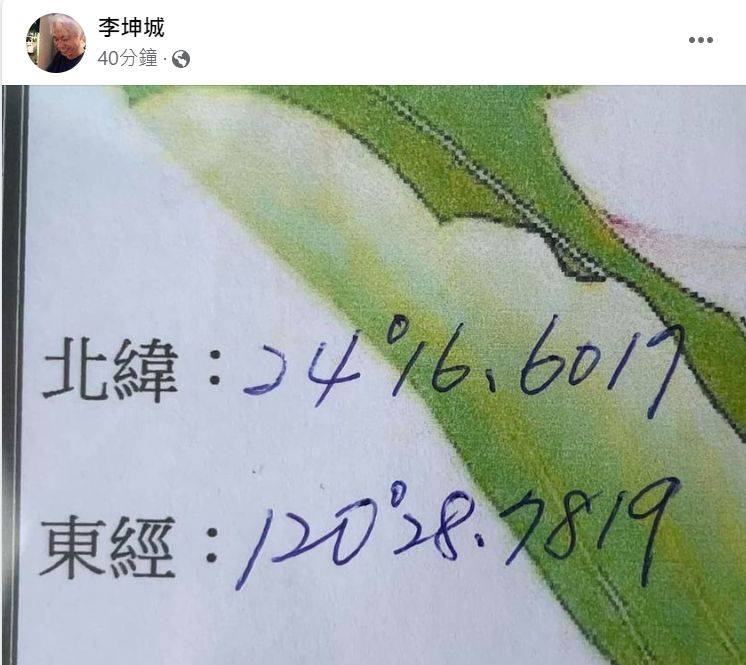 李坤城
40分鐘 ·
北緯：24°16.6017
東經：120°28.7819